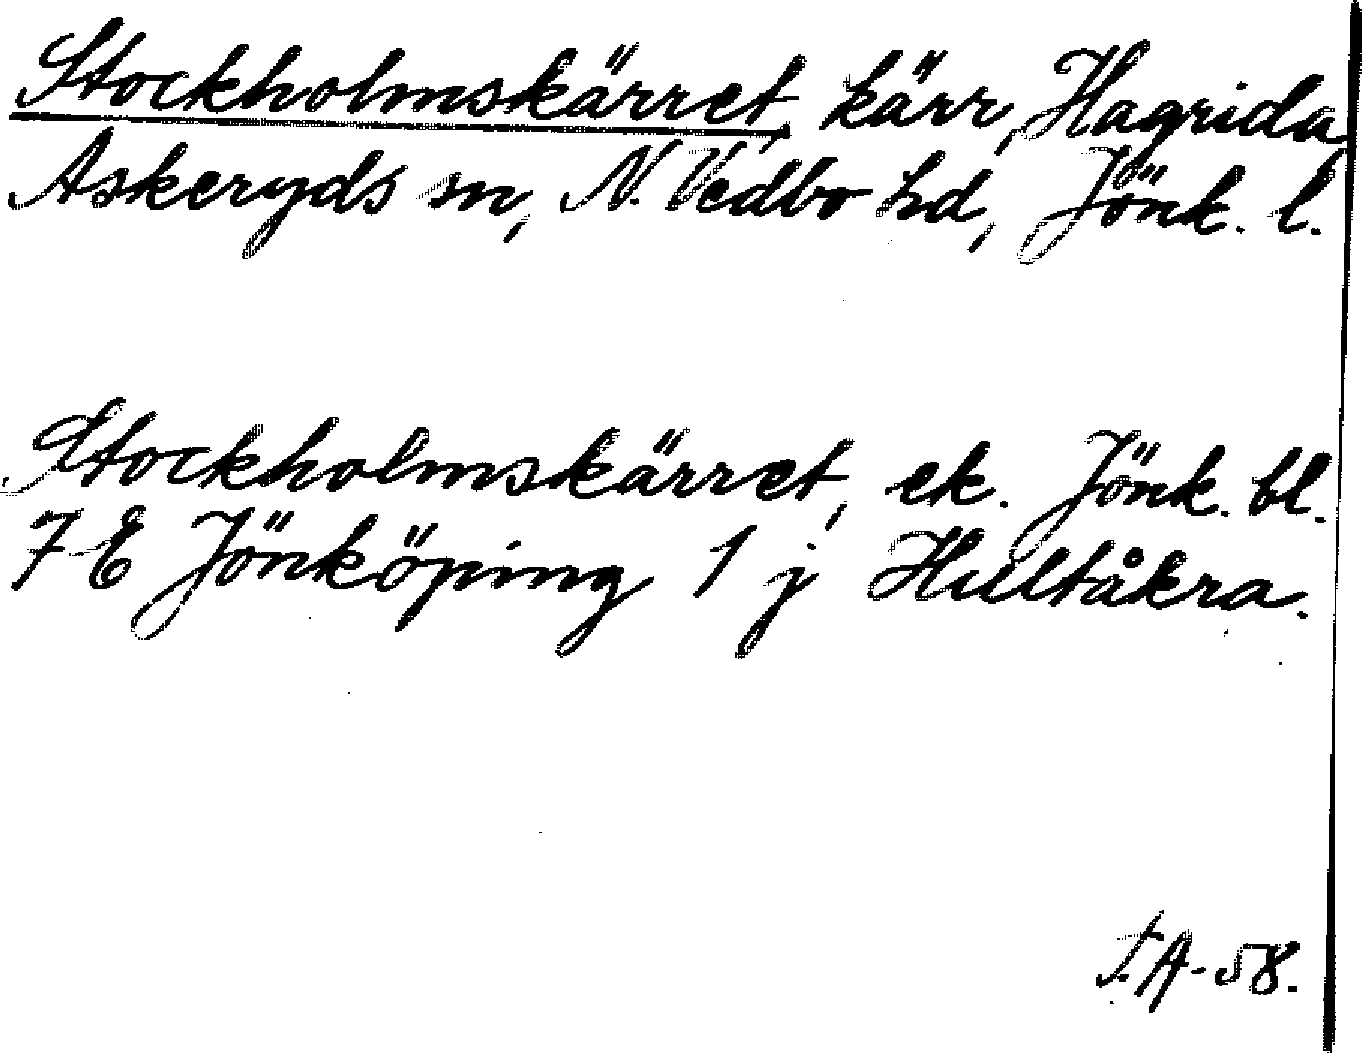 Stockholmskärret, kärr, Hagrida
Askeryds sn, N. Vedbo hd, Jönk. l.
Stockholmskärret, ek. Jönk. bl.
7 E Jönköping 1 j Hultåkra.
I.A-58.